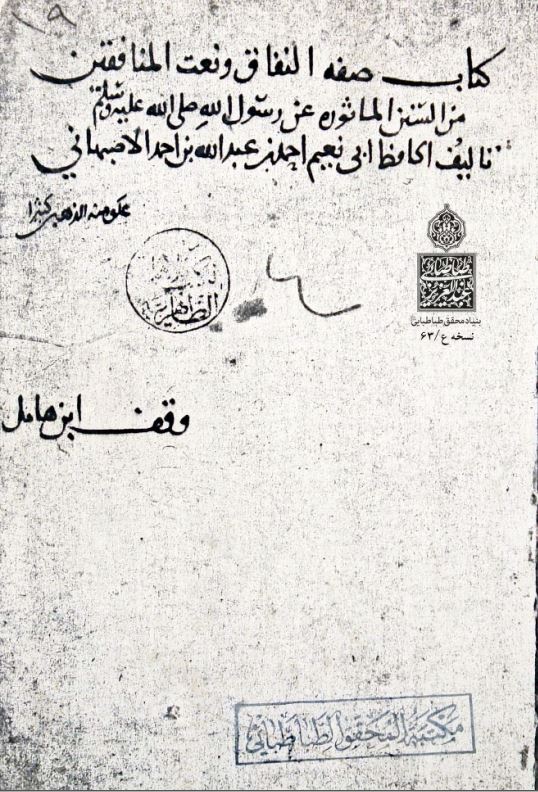 ١٩
كتاب صفه النفاق ونعت المنافقين
من السنن الماثوره عن رسول الله صلى الله عليه وسلم
تاليف الحافظ ابى نعيم احمد بن عبد الله بن احمد الاصبهاني
الذهبي كثيرا
الظاهرية
طباطبائی
عبدالعزیز
بنیاد محقق طباطبایی
نسخه ع /۶۳
وقف ابن هامل
مكتبة المحقق الطباطبائي